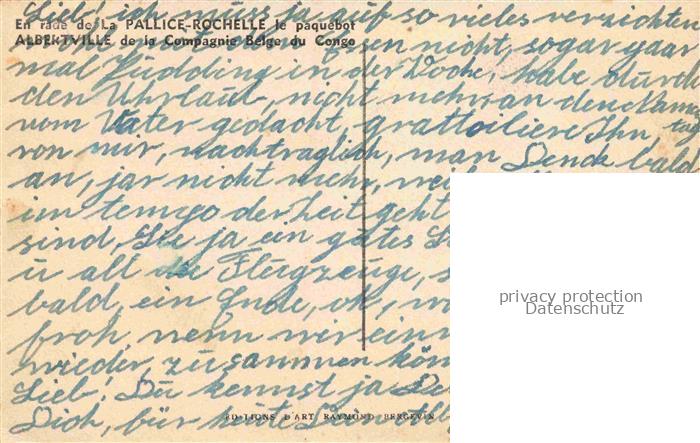 Lieb! ich muss ja auf so vieles verzichten
En rade de La PALLICE-ROCHELLE le paquebot
ALBERTVILLE de la Compagnie Belge du Congo
essen nicht, sogar
mal Pudding in der Woche, habe durch
den Uhrlaub, nicht mehr an den Nams
tag
vom Vater gedacht, grattoiliere Ihn,
von mir, nachträglich, man Denck bald
an, jar nicht mehr,
im tempo der Zeit geht
sind, Sie ja ein gutes
u all die Flugzeuge,
bald, ein Ende, ok,
froh, wenn wir
wieder, zusammen
Lieb! Du kennst ja
Dich, bür heute Dein
EDITIONS D'ART RAYMOND BERGEVIN
privacy protection
Datenschutz